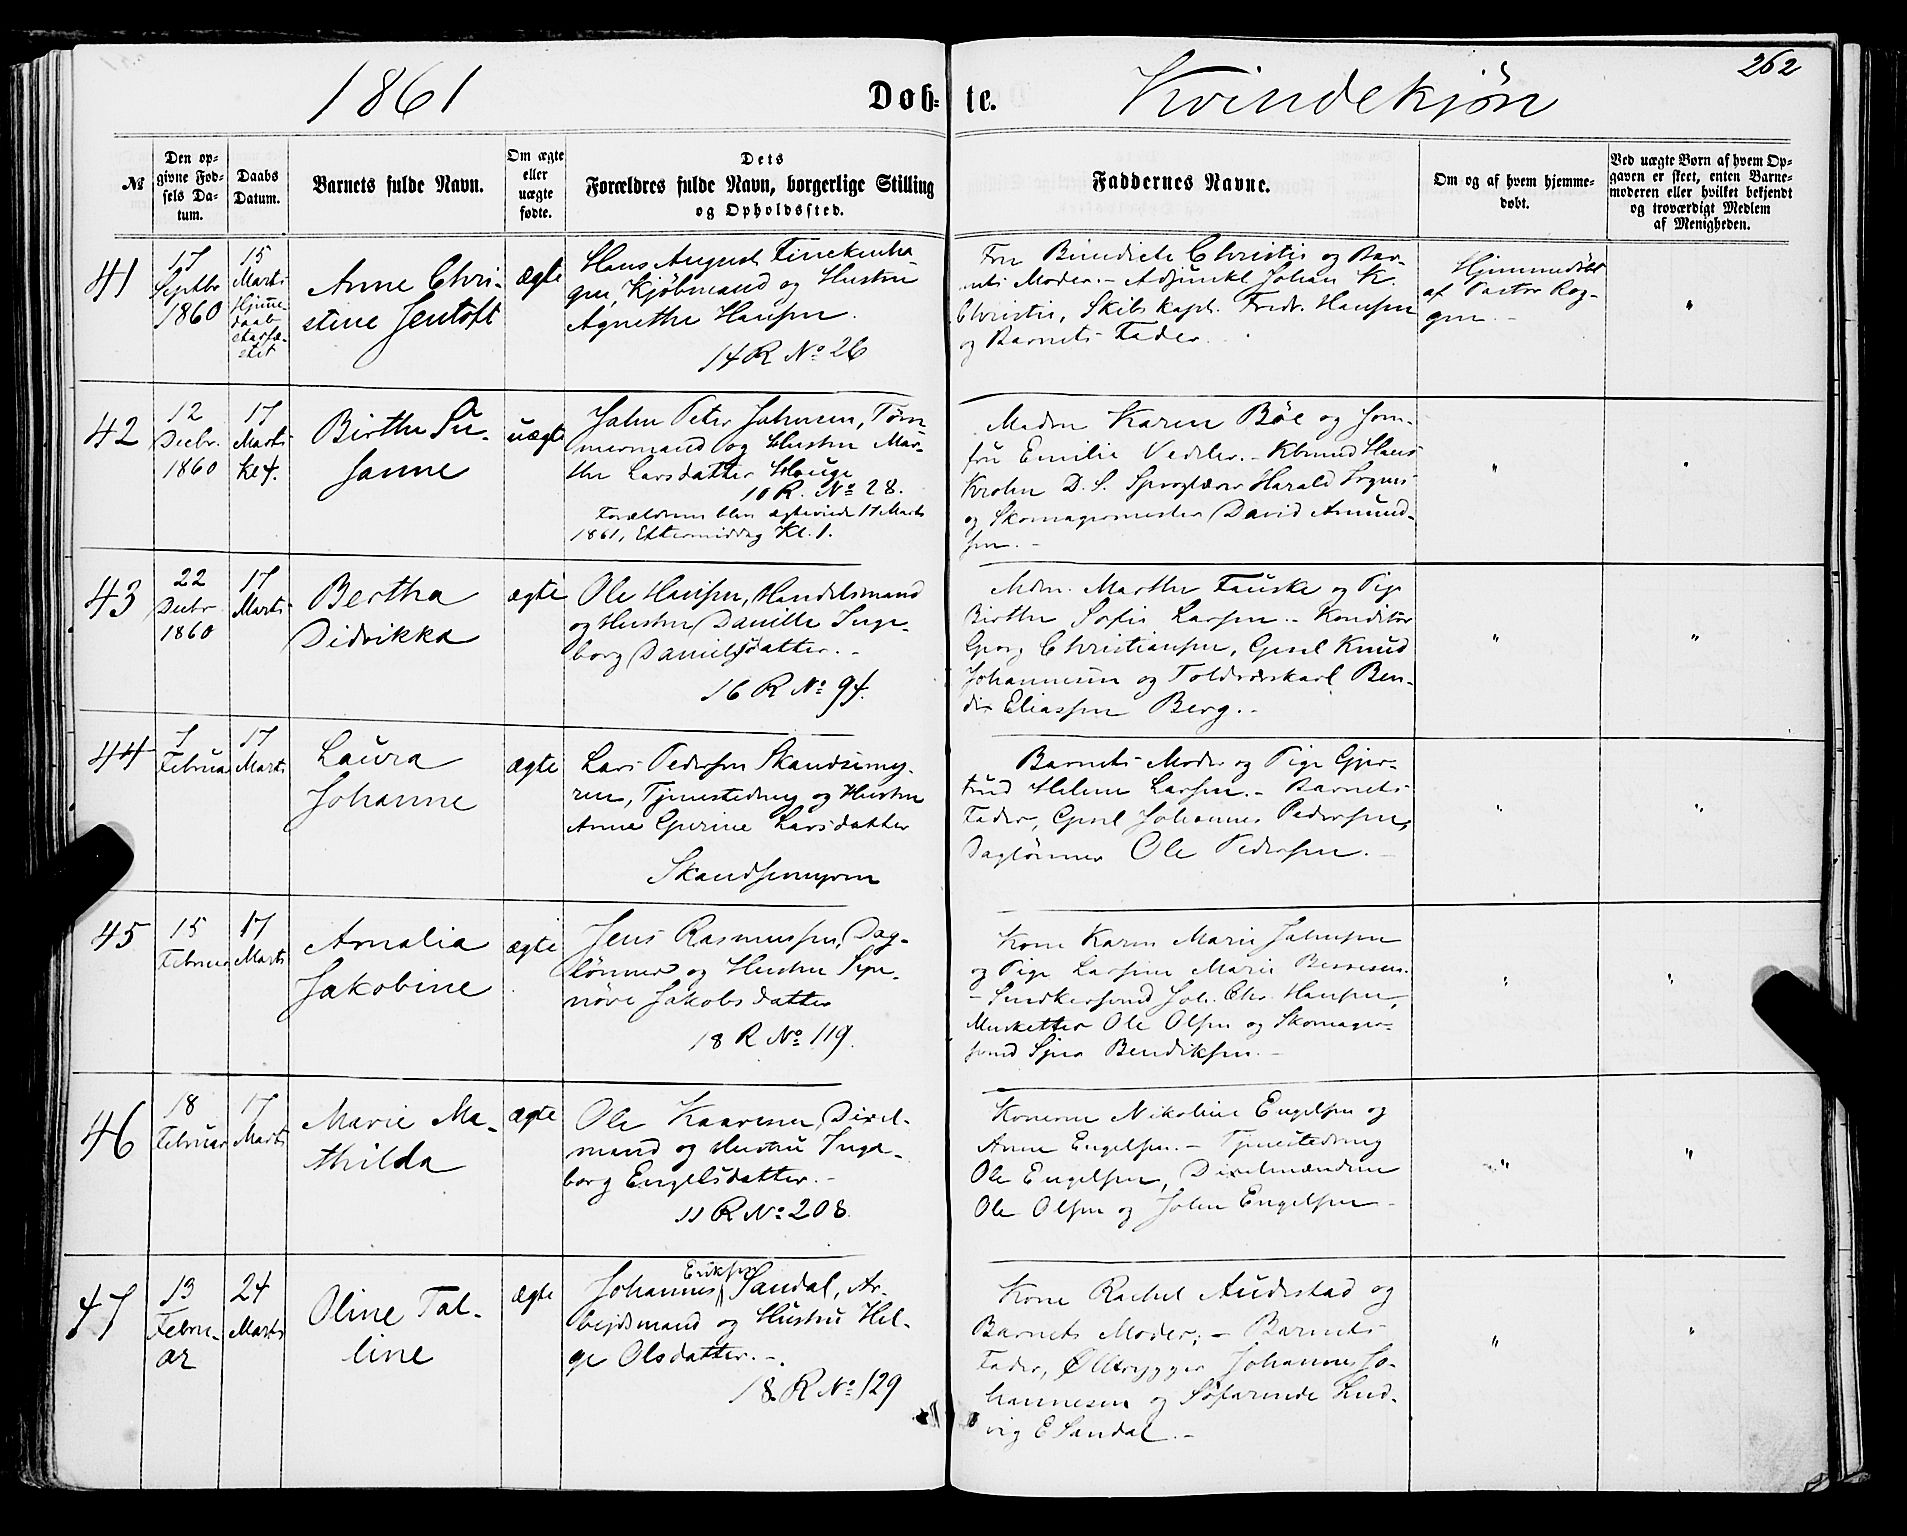 262
1861
Døb- te.
Kvindekjøn
№
Den op-
givne Fød-
sels Da-
tum.
Daabs
Datum.
Barnets fulde Navn.
Om ægte
eller
uægte
fødte.
Dets
Forældres fulde Navn, borgerlige Stilling
og Opholdssted.
Faddernes Navne.
Om og af hvem hjemme-
døbt.
Ved uægte Børn af hvem Op-
gaven er skeet, enten Barne-
moderen eller hvilket bekjendt
og troværdigt Medlem
af Menigheden.
41
17
Septbr
1860
15
Marts
Hjeme-
daab
stadfæ-
stet
Anne Chri-
stine Jentoft
ægte
Hans August Finckenha-
gen, Kjøbmand og Hustru
Agnethe Hansen.
14 R № 26
Fru Bendicte Christie og Bar-
nets Moder. - Adjunkt Johan K.
Christie, Skibskapt. Fredr. Hansen
og Barnets Fader.
Hjemmedøbt
af Pastor Rog-
gen. -
"
42
12
Decbr.
1860
17
Marts
Kl 4.
Birthe Su-
sanne
uægte
John Peter Johnsen, Tøm-
mermand og Hustru Mar-
the Larsdatter Hauge
10 R. № 28.
Forældrene blev ægteviede 17 Marts
1861, Eftermiddag Kl. 1.
Madm Karen Böe og Jom-
fru Emilie Vedeler. - Kbmnd Hans
Krohn D. S. Sproglærer Harald
og Skomagermester David Amund-
sen. -
"
"
43
22
Decbr
1860
17
Marts
Bertha
Didrikka
ægte
Ole Hansen, Handelsmand
og Hustru Danille Inge-
borg Danielsdatter. -
16 R № 94.
Mdm. Marthe Fauske og Pige
Birthe Sofie Larsen. - Konditor
Georg Christiansen, Gsel Knud
Johannesen og Toldrorskarl Ben-
dix Eliassen Berg. -
"
"
44
7
Februar
17
Marts
Laura
Johanne
ægte
Lars Pedersen Skandsemy-
ren, Tjenestedreng og Hustru
Anne Gurine Larsdatter
Skandsemyren
Barnets Moder og Pige Gjer-
trud Helene Larsen. - Barnets
Fader, Gsel Johannes Pedersen,
Daglönner Ole Pedersen. -
"
"
45
15
Februar
17
Marts
Amalia
Jakobine
ægte
Jens Rasmussen, Dag-
lönner og Hustru Syn-
növe Jakobsdatter
18 R № 119.
Kone Karen Marie Johnsen
og Pige Larsine Marie Bernesen.
- Snedkersvend Joh. Chr. Hansen,
Musketter Ole Olsen og Skomager-
svend Sjur Bendiksen. -
"
"
46
18
Februar
17
Marts
Marie Ma-
thilda
ægte
Ole Knarvesen, Dixel-
mand og Hustru Inge-
borg Engelsdatter. -
11 R № 208.
Konerne Nikoline Engelsen og
Anne Engelsen. - Tjenestedreng
Ole Engelsen, Dixelmændene
Ole Olsen og John Engelsen -
"
"
47
13
Febru-
ar
24
Marts
Oline Tal-
line
ægte
Eriksen
Johannes Sandal, Ar-
bejdsmand og Hustru Hel-
ge Olsdatter. -
18. R № 129
Kone Rachel Audestad og
Barnets Moder; - Barnets
Fader, Öltrygger Johannes Jo-
hannesen og Söfarende Lud-
vig E Sandal. -
"
"